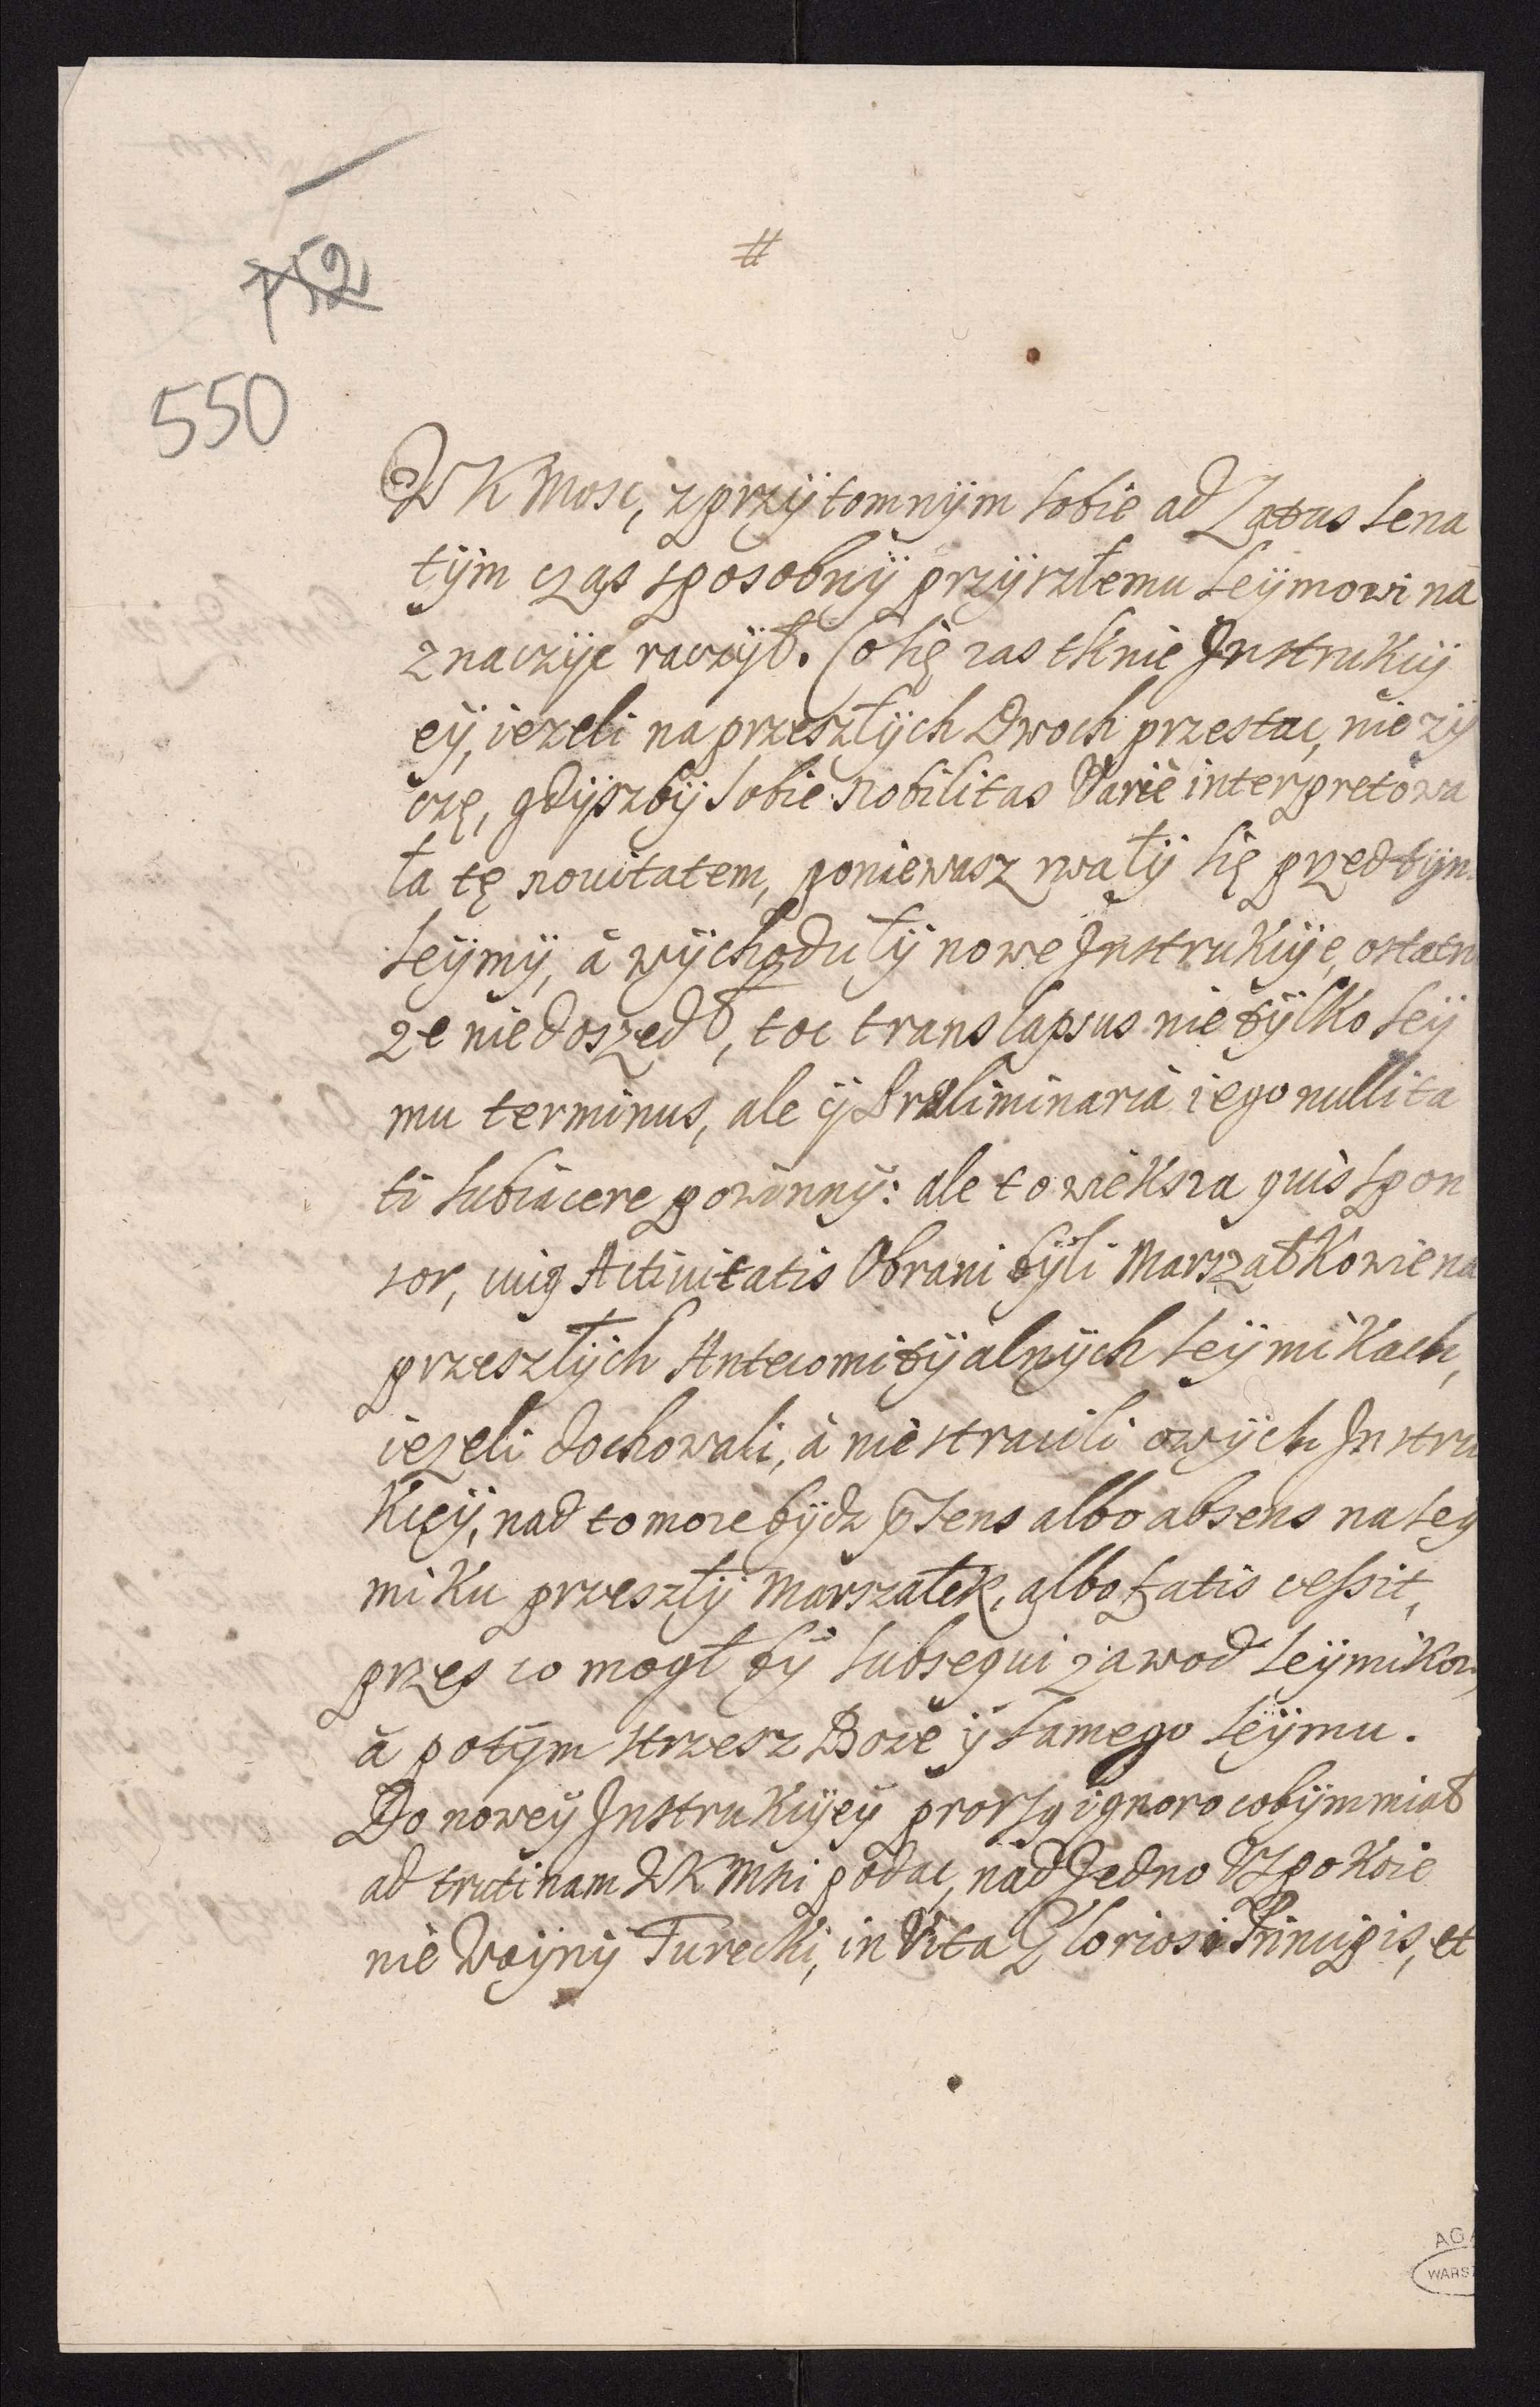 #
752
550
WKMosc, z przÿtomnÿm sobie ad Latus sena
tÿm czas sposobnÿ przÿszłemu seÿmowi na
znaczÿc raczÿł. Co się zas tknie Instrukcÿ
eÿ, iezeli na przeszłÿch dwoch przestac, nie zÿ
czę, gdÿszbÿ sobie Nobilitas Varie interpretowa
ła tę novitatem, poniewasz rwałÿ się przed tÿm
seÿmÿ, à wÿchodziłÿ nowe Instrukcÿe, ostatn
ze niedoszedł, toc translapsus nie tÿlko seÿ
mu terminus, ale ÿ Præliminaria iego nullita
ti subiacere powinnÿ: ale to wieksza quis spon
sor, cuig Activitatis Obrani bÿli Marszałkowie na
przeszłÿch Antecomitÿalnÿch seÿmikach,
iezeli dochowali, à nie stracili owÿch Instru
kcÿi, nad to moze bÿdz p̄sens albo absens na seÿ
miku przeszłÿ Marszałek, albo fatis cessit,
przes co mogł bÿ subsequi zawod seÿmikow,
à potÿm strzesz Boze ÿ samego seÿmu.
Do noweÿ Instrukcÿeÿ prorsq ignoro cobÿm miał
ad trutinam WKMsci podac, nad Jedno Uspokoie
nie Woÿnÿ Turecki, in Vita Gloriosi Principis, et
AGA
WARSZ